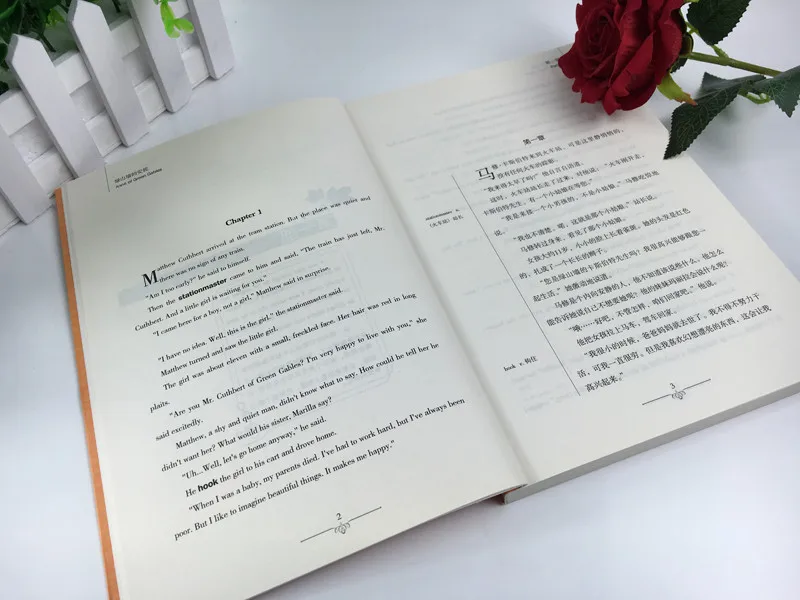 绿山墙的安妮
Anne of Green Gables
Chapter 1
Matthew Cuthbert arrived at the train station. But the place was quiet and
there was no sign of any train.
"Am I too early?" he said to himself.
Then the stationmaster came to him and said, "The train has just left, Mr.
Cuthbert. And a little girl is waiting for you."
"I came here for a boy, not a girl," Matthew said in surprise.
"I have no idea. Well, this is the girl," the stationmaster said.
Matthew turned and saw the little girl.
The girl was about eleven with a small, freckled face. Her hair was red in long
plaits.
"Are you Mr. Cuthbert of Green Gables? I'm very happy to live with you," she
said excitedly.
Matthew, a shy and quiet man, didn't know what to say. How could he tell her he
didn't want her? What would his sister, Marilla say?
"Uh...Well, let's go home anyway," he said.
He hook the girl to his cart and drove home.
"When I was a baby, my parents died. I've had to work hard, but I've always been
poor. But I like to imagine beautiful things. It makes me happy."
2
第一章
马修·卡斯伯特来到火车站。可是这里静悄悄的,
没有任何火车的踪影。
"我来得太早了吗?"他自言自语道。
这时,火车站站长走了过来,对他说:"火车刚开走,
卡斯伯特先生。有一个小姑娘在等您。"
"我是来接一个小男孩的,不是小姑娘。"马修吃惊地
说。
"我也不清楚。喏,这就是那个小姑娘。"站长说。
马修转过身来,看见了那个小姑娘。
女孩大约11岁,小小的脸上长着雀斑。她的头发是红色
的,扎成了一个长长的辫子。
"您是绿山墙的卡斯伯特先生吗?我很高兴能够跟您一
起生活。"她激动地说道。
马修是个内向安静的人,他不知道该说些什么。他怎么
能告诉她说自己不想要她呢?他的妹妹玛丽拉会说什么呢?
"噢……好吧,不管怎样,咱们回家吧。"他说。
他把女孩拉上马车,驾车回家。
"我很小的时候,爸爸妈妈都去世了。我不得不努力干
活,可我一直很穷。但是我喜欢幻想漂亮的东西,这会让我
高兴起来。"
stationmaster n.
(火车站)站长
hook v. 钩住
3